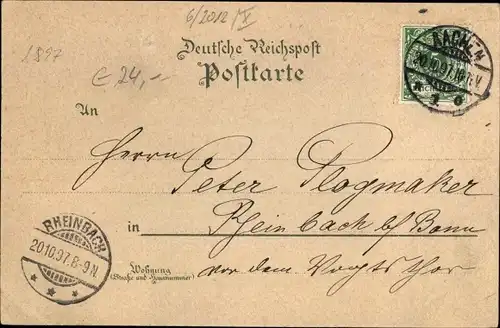 6/2012 /X
1897
€ 24,-
Deutsche Reichspost
Postkarte
AACHEN
20.10.97.
1 o
An
Herrn
Peter Plogmaker
in Rheinbach b/ Bonn
Wohnung
(Straße und Hausnummer)
vor dem Voigts Thor
RHEINBACH
20.10.97.8-9N.